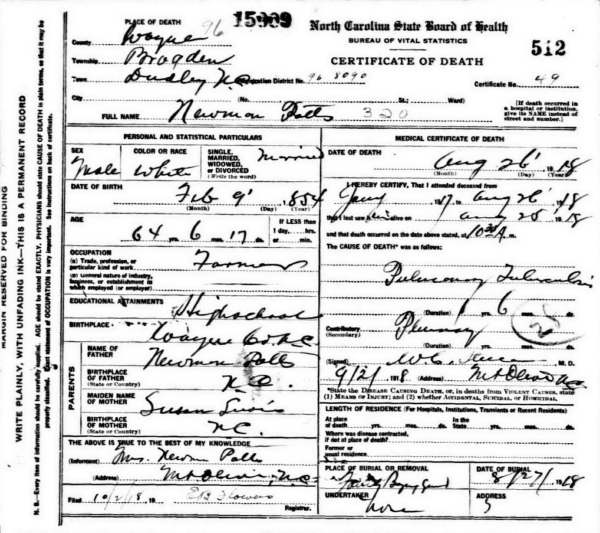 PLACE OF DEATH 96 15909
County Wayne
Township Brogden
Town Dudley N.C. Registration District No. 96 8090 Certificate No. 49
City (No. St.; Ward)
[If death occurred in a hospital or institution, give its NAME instead of street and number.]
FULL NAME Newmon Potts 320
North Carolina State Board of Health
BUREAU OF VITAL STATISTICS
CERTIFICATE OF DEATH
512
MARGIN RESERVED FOR BINDING
WRITE PLAINLY, WITH UNFADING INK—THIS IS A PERMANENT RECORD
PERSONAL AND STATISTICAL PARTICULARS
SEX Male
COLOR OR RACE White
SINGLE, MARRIED, WIDOWED, OR DIVORCED (Write the word) Married
DATE OF BIRTH Feb 9 1854
(Month) (Day) (Year)
AGE 64 yrs. 6 mos. 17 ds.
IF LESS than 1 day, hrs. or min.
OCCUPATION
(a) Trade, profession, or particular kind of work Farmer
(b) General nature of industry, business, or establishment in which employed (or employer)
EDUCATIONAL ATTAINMENTS High school
BIRTHPLACE (State or Country) Wayne Co. N.C.
PARENTS
NAME OF FATHER Newmon Potts
BIRTHPLACE OF FATHER (State or Country) N.C.
MAIDEN NAME OF MOTHER Susan
BIRTHPLACE OF MOTHER (State or Country) N.C.
THE ABOVE IS TRUE TO THE BEST OF MY KNOWLEDGE
(Informant) Mrs. Newmon Potts
(Address) Mt Olive, N.C.
Filed 10/2/18, 19 Flowers
Registrar.
MEDICAL CERTIFICATE OF DEATH
DATE OF DEATH Aug 26 1918
(Month) (Day) (Year)
I HEREBY CERTIFY, That I attended deceased from
Aug 26 1918
that I last saw him alive on Aug 25 1918
and that death occurred on the date above stated, at
The CAUSE OF DEATH* was as follows:
Pulmonary Tuberculosis
(Duration) yrs. 6 mos. ds.
Contributory (Secondary) Pleurisy
(Duration) yrs. mos. ds.
(Signed) W.C. M. D.
9/2/ 1918 (Address) Mt Olive N.C.
*State the DISEASE CAUSING DEATH, or, in deaths from VIOLENT CAUSES, state (1) MEANS OF INJURY; and (2) whether ACCIDENTAL, SUICIDAL or HOMICIDAL.
LENGTH OF RESIDENCE (For Hospitals, Institutions, Transients or Recent Residents)
At place of death yrs. mos. ds. In the State yrs. mos. ds.
Where was disease contracted, if not at place of death?
Former or usual residence
PLACE OF BURIAL OR REMOVAL Family
DATE OF BURIAL 8/27/1918
UNDERTAKER none
ADDRESS